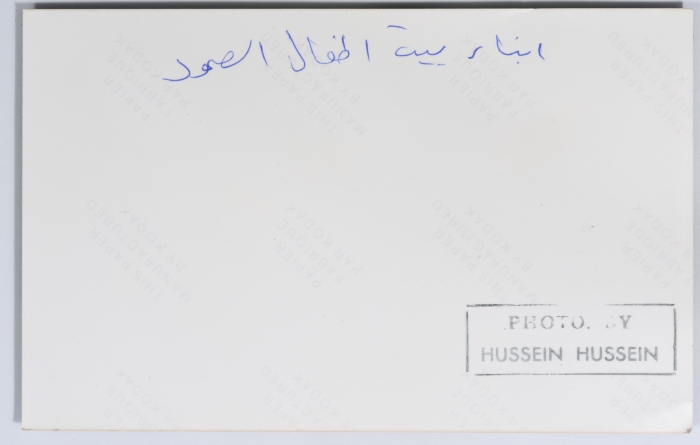 ابناء بيت اطفال الصمود
PHOTO. BY
HUSSEIN HUSSEIN
THIS PAPER
MANUFACTURED
BY KODAK
PAPIER
FABRIQUE
PAR KODAK